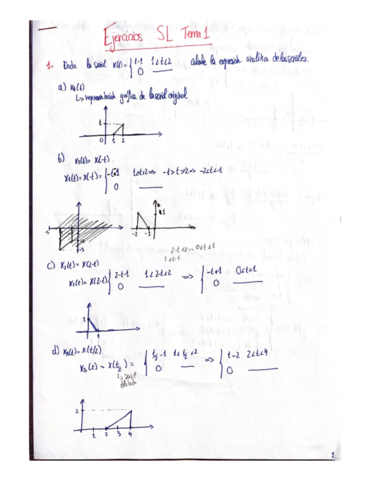 Ejercicios SL Tema 1
1. Dada la señal x(t) = { t-1 1<t<2 calcula la expresión analítica de las señales.
0 ——
a) x₁(t)
↳ representación gráfica de la señal original
1
1 2
b) x₂(t) = x(-t).
1<-t<2 ⇒ -1>t>-2 ⇒ -2<t<-1
0 ——
-2 -1
c)
x(2-t) { 2-t-1 1<2-t<2 ⇒ { -t+1 0<t<1
0 —— 0 ——
1
1
d) x₃(t) = x(t/2)
x₃(t) = x(t/2) = { t/2 -1 1<t/2<2 ⇒ { t-2 2<t<4
0 —— 0 ——
2
1 2 3 4
1